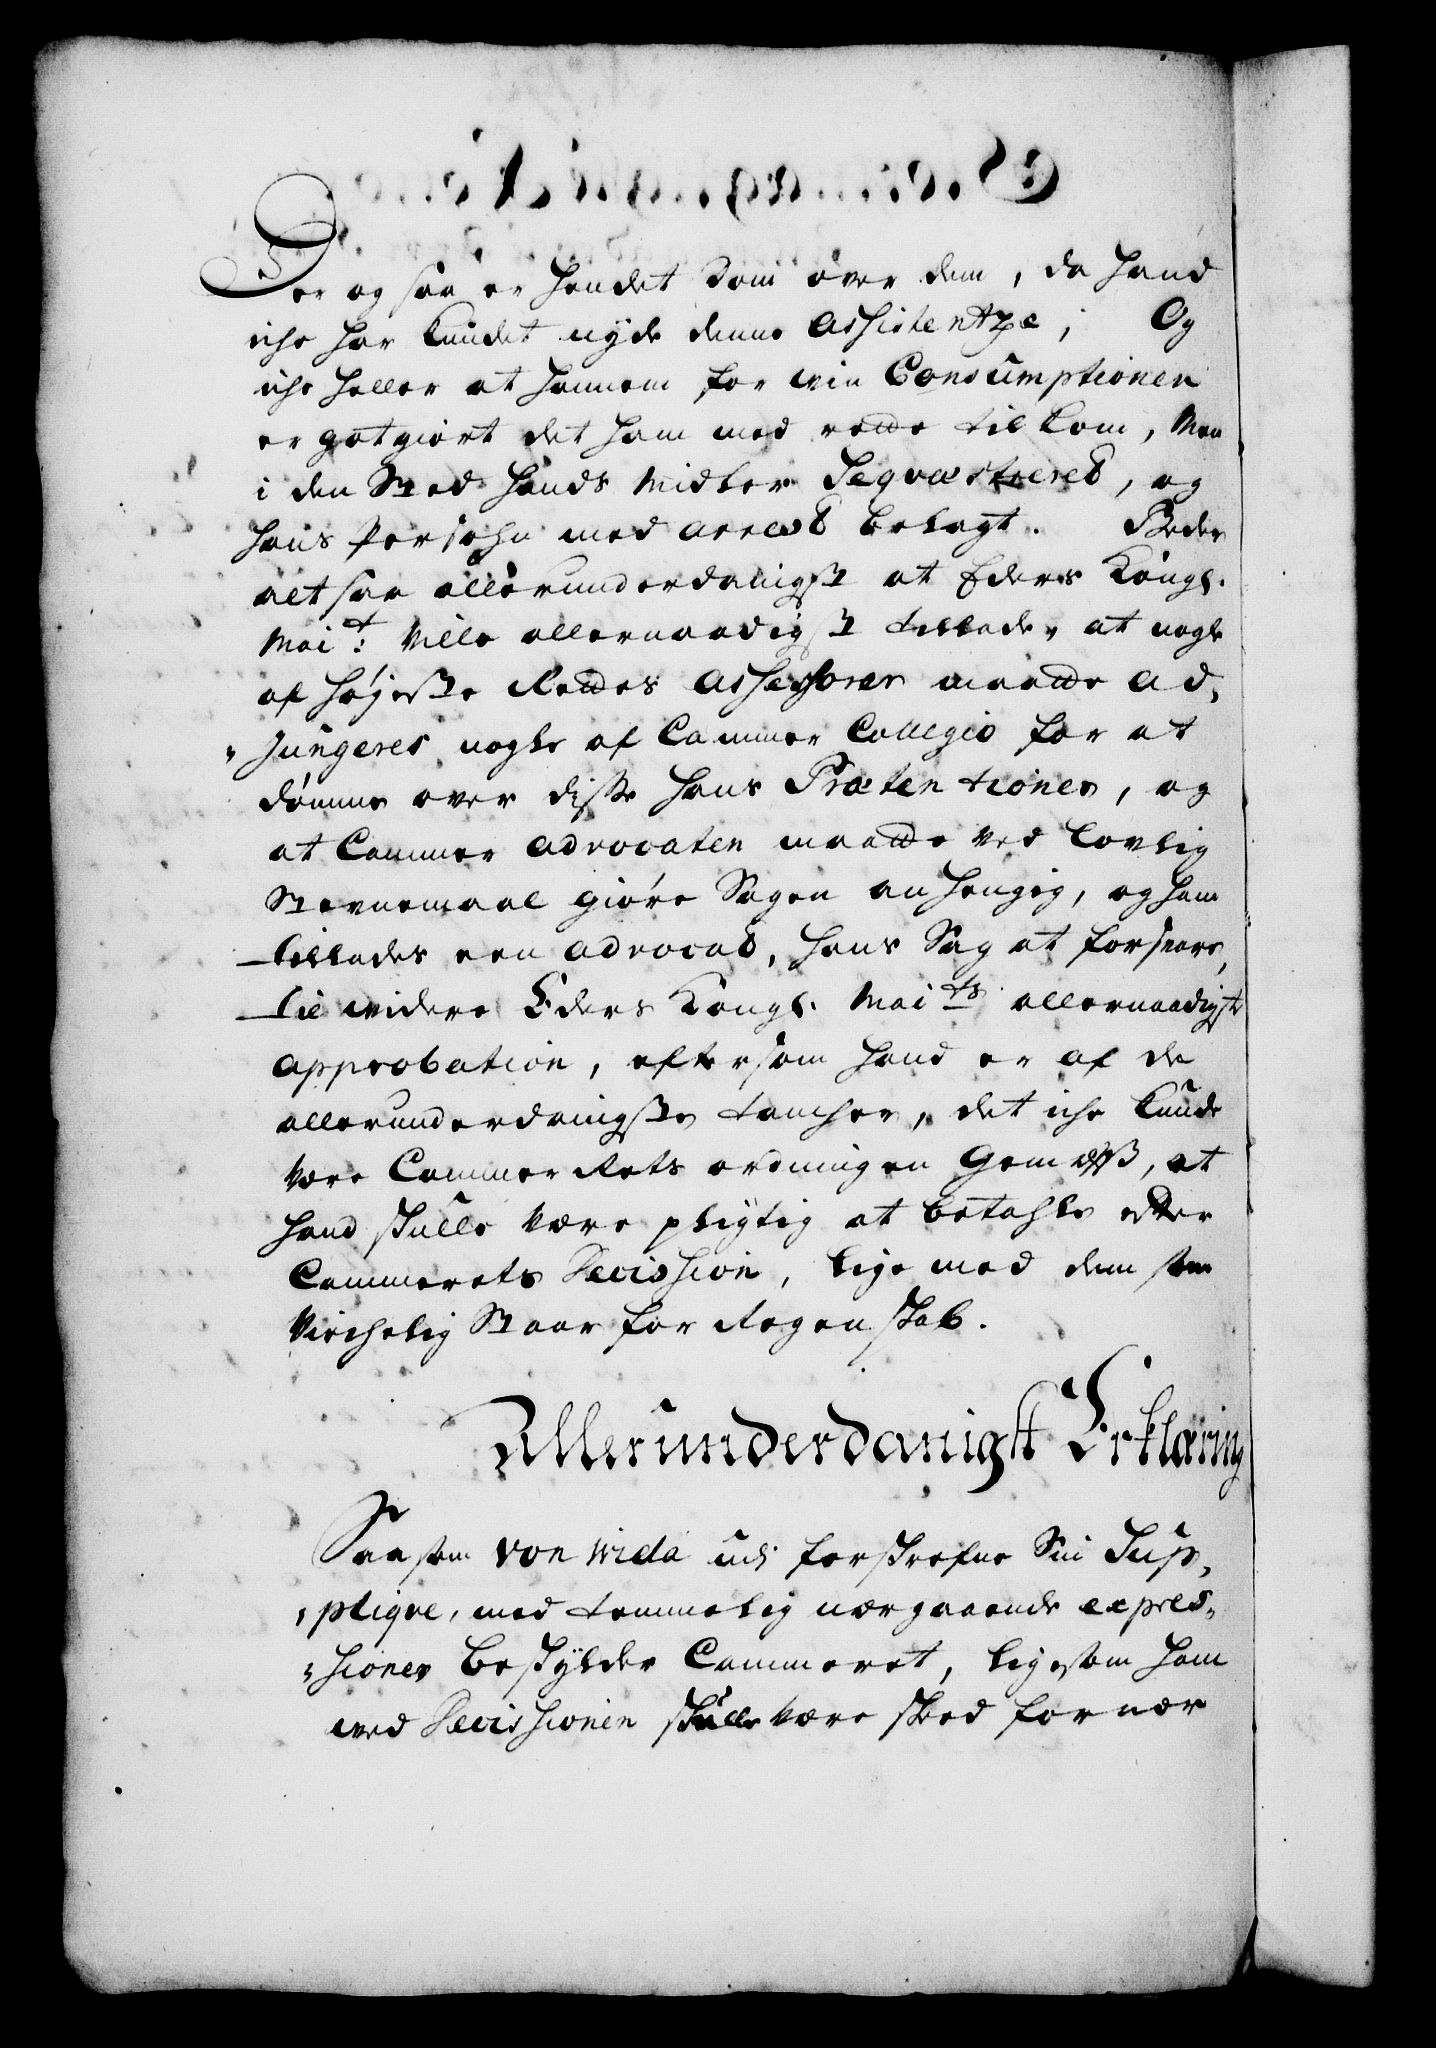 Der og saa er hendet Dom over dem, da hand
iche har kundet nyde denne Assistentze; Og
iche heller at hannem for wiin Consumptionen
er gotgiort det ham med rette tilkom, Men
i den Sted hands Midler Seqvæstreret, og
hans Persohn med arrest belagt. Beder
altsaa allerunderdanigst at Eders Kongl.
Mai^t: Ville allernaadigst tillade, at nogle
af Højeste Rettes Assessorer maatte ad-
jungeres nogle af Cammer Collegio for at
dømme over disse hans Prætentioner, og
at Cammer Advocaten maatte ved lovlig
Stevnemaal giøre Sagen anhengig, og ham
tillades een Advocat, hans Sag at forsvare,
til widere Eders Kongl. Mai^ts allernaadigste
Approbation, eftersom hand er af de
allerunderdanigste tancher, det iche kunde
være Cammer Rets ordningen Gemæss, at
hand skulle være pligtig at betahle efter
Cammerets Revission, lige med dem som
Virchelig Staar for Regenskab.
Allerunderdanigst Erklæring
Saasom von Wida udi forskrefne Sin Sup-
pliqve, med temmelig nærgaaende expres-
sioner Beskylder Cammeret, ligesom ham
wed Revissionen skulle være skeed for nær